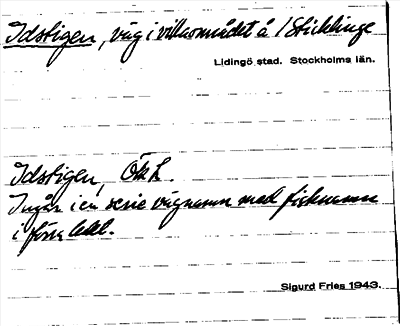 Idstigen, väg i villaområdet å /Sticklinge
Lidingö stad. Stockholms län.
Idstigen, Ök L.
Ingår i en serie vägnamn med fisknamn
i förra led.
Sigurd Fries 1943.